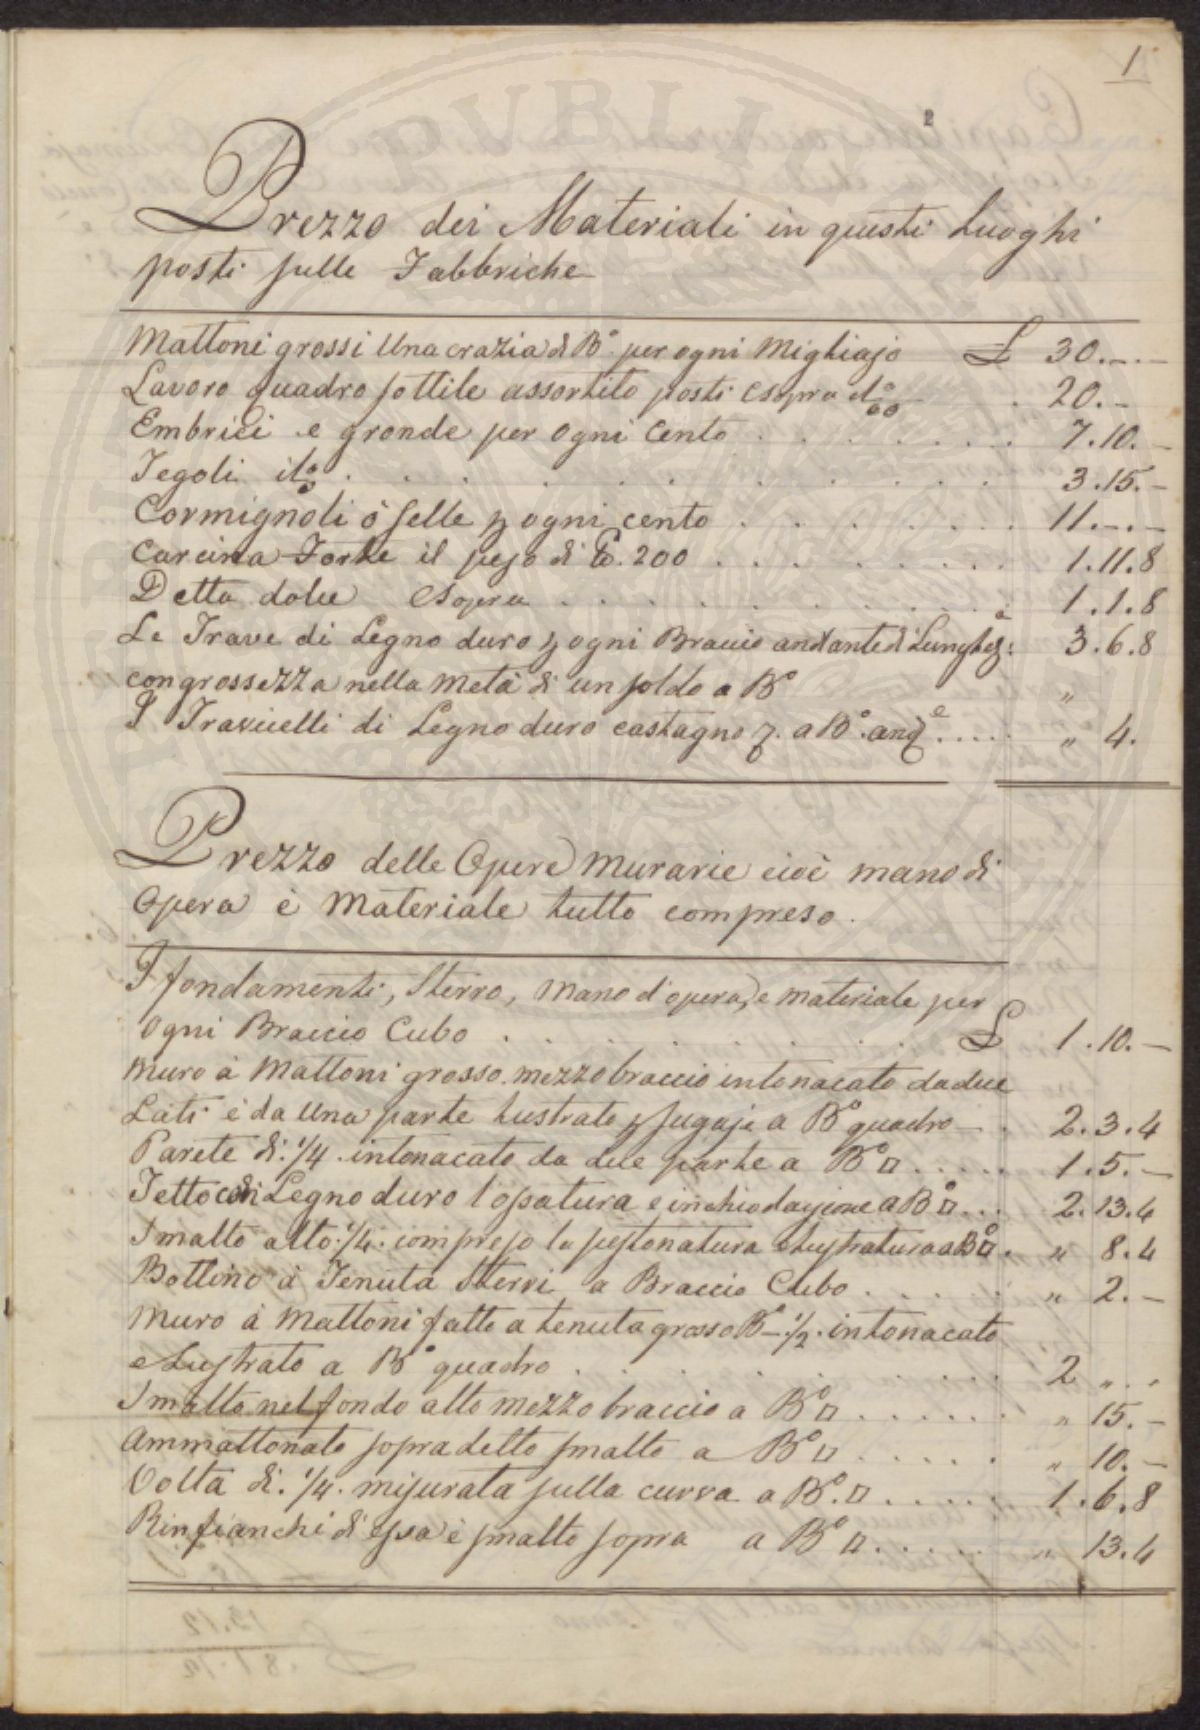 1
2
PVBLIC
Prezzo dei Materiali in questi Luoghi
posti sulle Fabbriche
Mattoni grossi Una crazia di B.º per ogni Migliajo £ 30.-.-
Lavoro quadro sottile assortito posti Csopra d.º 20.-
Embrici e gronde per ogni Cento 7.10.-
Tegoli id.º 3.15.-
Cormignoli ò Selle p ogni cento 11.-.-
Carcina Forte il peso di lb. 200 1.11.8
Detta dolce Csopra 1.1.8
Le Trave di Legno duro p ogni Braccio andante di Lunghez: 3.6.8
con grossezza nella metà di un soldo a B.º "
I Travicelli di Legno duro castagno p. a B.º and.e " 4.
Prezzo delle Opere Murarie cioè mano di
Opera è Materiale tutto compreso.
I fondamenti, Sterro, Mano d'opera, e materiale per
Ogni Braccio Cubo £ 1.10.-
Muro à Mattoni grosso mezzo braccio intonacato da due
Lati è da Una parte lustrato p fugaje a B.º quadro 2.3.4
Parete di 1/4 intonacato da due parte a B.º □ 1.5.-
Tetto di Legno duro l'ossatura e inchiodazione a B.º □ 2.13.4
Smalto alto 1/4 compreso la pestonatura e lustratura a B.º □ " 8.4
Bottino à Tenuta Sterri a Braccio Cubo " 2.-
Muro à Mattoni fatto a tenuta grosso B.º - 1/2 intonacato
e Lustrato a B.º quadro 2 " "
Smalto nel fondo alto mezzo braccio a B.º □ " 15.-
Ammattonato sopra detto smalto a B.º □ " 10.-
Volta di 1/4 misurata sulla curva a B.º □ 1.6.8
Rinfianchi di essa è smalto sopra a B.º □ " 13.4